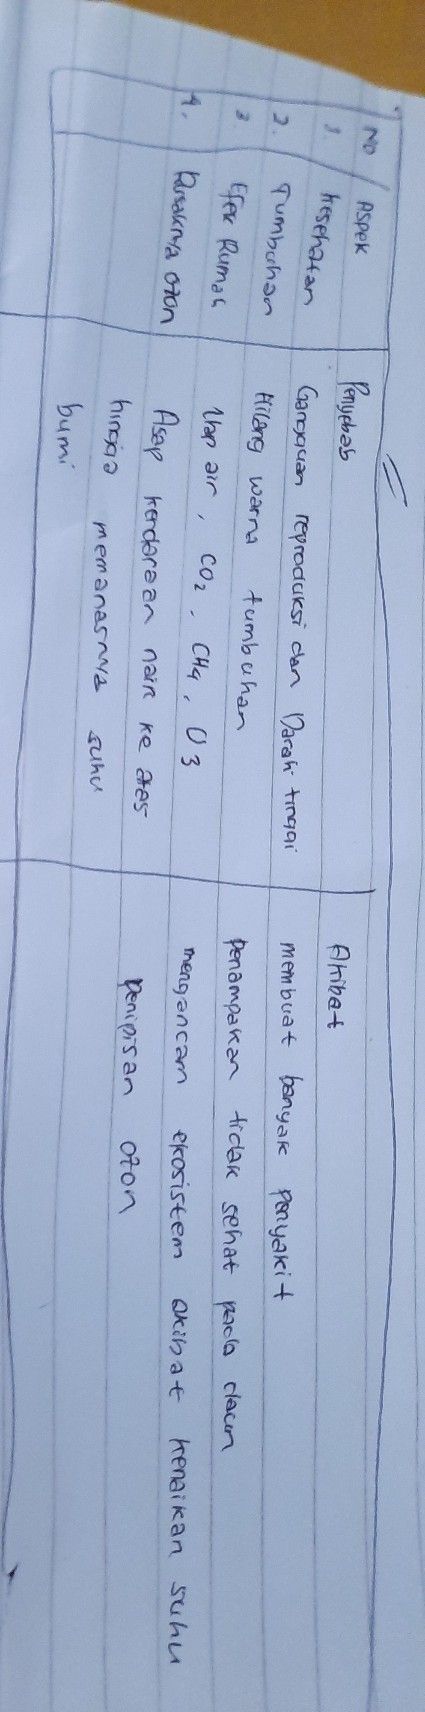 No Aspek Penyebab Akibat
1. Kesehatan Gangguan reproduksi dan Darah tinggi membuat banyak penyakit
2. Tumbuhan Hilang warna tumbuhan penampakan tidak sehat pada daun
3. Efek Rumah Uap air, CO2, CH4, O3 mengancam ekosistem akibat kenaikan suhu
4. Rusaknya ozon Asap kendaraan naik ke atas penipisan ozon
hingga memanasnya suhu
bumi